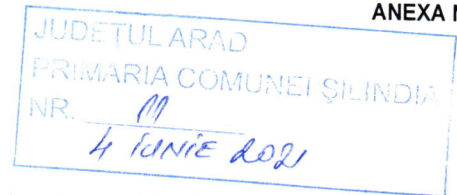 ANEXA N
JUDEȚUL ARAD
PRIMĂRIA COMUNEI ȘILINDIA
NR. 11
4 IUNIE 2021